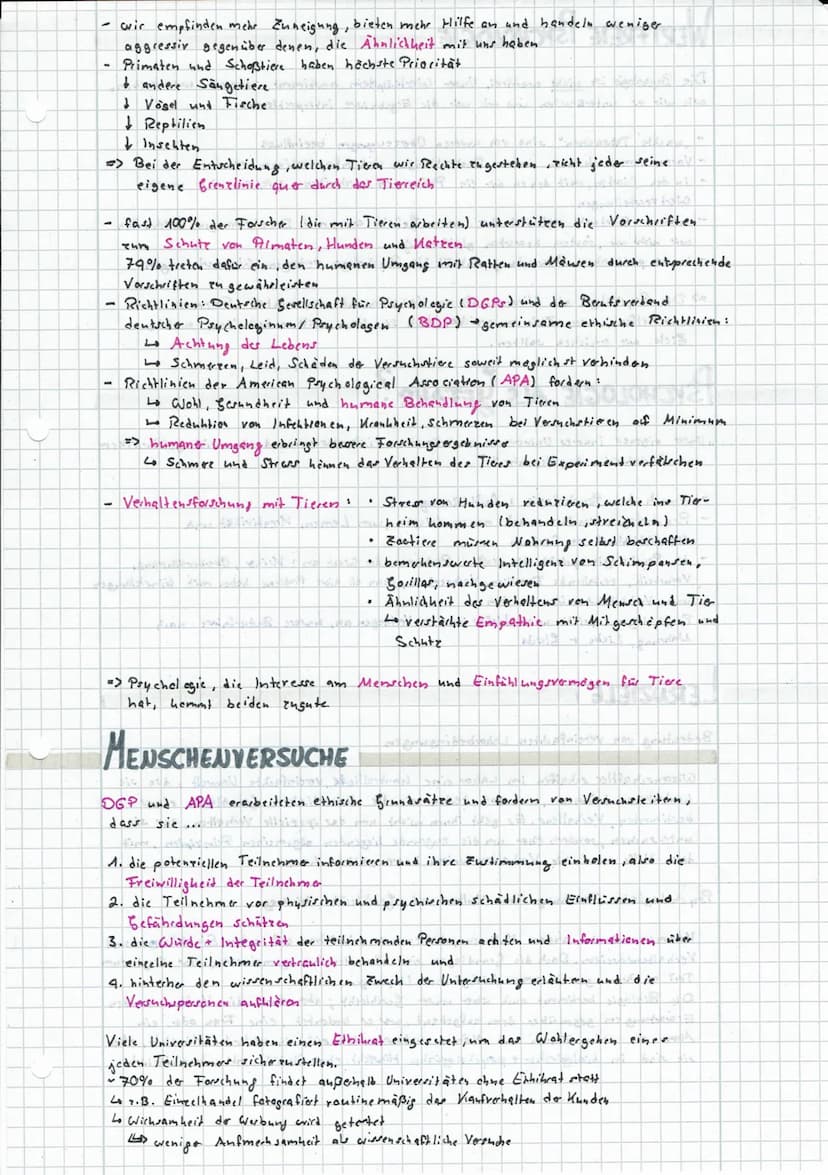 - wir empfinden mehr Zuneigung, bieten mehr Hilfe an und handeln weniger
aggressiv gegenüber denen, die Ähnlichkeit mit uns haben
- Primaten und Schoßtiere haben höchste Priorität
↓ andere Säugetiere
↓ Vögel und Fische
↓ Reptilien
↓ Insekten
=> Bei der Entscheidung, welchen Tieren wir Rechte zugestehen, zieht jeder seine
eigene Grenzlinie quer durch das Tierreich
- fast 100% der Forscher (die mit Tieren arbeiten) unterstützen die Vorschriften
zum Schutz von Primaten, Hunden und Katzen
79% treten dafür ein, den humanen Umgang mit Ratten und Mäusen durch entsprechende
Vorschriften zu gewährleisten
- Richtlinien: Deutsche Gesellschaft für Psychologie (DGPs) und der Berufsverband
deutscher Psychologinnen/Psychologen (BDP) → gemeinsame ethische Richtlinien:
↳ Achtung des Lebens
↳ Schmerzen, Leid, Schäden der Versuchstiere soweit möglichst verhindern
- Richtlinien der American Psychological Association (APA) fordern:
↳ Wohl, Gesundheit und humane Behandlung von Tieren
↳ Reduktion von Infektionen, Krankheit, Schmerzen bei Versuchstieren auf Minimum
=> humaner Umgang erbringt bessere Forschungsergebnisse
↳ Schmerz und Stress können das Verhalten des Tieres bei Experiment verfälschen
- Verhaltensforschung mit Tieren: • Stress von Hunden reduzieren, welche ins Tier-
heim kommen (behandeln, streicheln)
• Zootiere müssen Nahrung selbst beschaffen
• bemerkenswerte Intelligenz von Schimpansen,
Gorillas, nachgewiesen
• Ähnlichkeit des Verhaltens von Mensch und Tier
↳ verstärkte Empathie mit Mitgeschöpfen und
Schutz
=> Psychologie, die Interesse am Menschen und Einfühlungsvermögen für Tiere
hat, kommt beiden zugute
MENSCHENVERSUCHE
DGP und APA erarbeiteten ethische Grundsätze und fordern von Versuchsleitern,
dass sie ...
1. die potenziellen Teilnehmer informieren und ihre Zustimmung einholen, also die
Freiwilligkeit der Teilnehmer
2. die Teilnehmer vor physischen und psychischen schädlichen Einflüssen und
Gefährdungen schützen
3. die Würde + Integrität der teilnehmenden Personen achten und Informationen über
einzelne Teilnehmer vertraulich behandeln und
4. hinterher den wissenschaftlichen Zweck der Untersuchung erläutern und die
Versuchspersonen aufklären
Viele Universitäten haben einen Ethikrat eingesetzt, um das Wohlergehen eines
jeden Teilnehmers sicherzustellen.
~70% der Forschung findet außerhalb Universitäten ohne Ethikrat statt
↳ z.B. Einzelhandel fotografiert routinemäßig das Kaufverhalten der Kunden
↳ Wirksamkeit der Werbung wird getestet
↳ weniger Aufmerksamkeit als wissenschaftliche Versuche